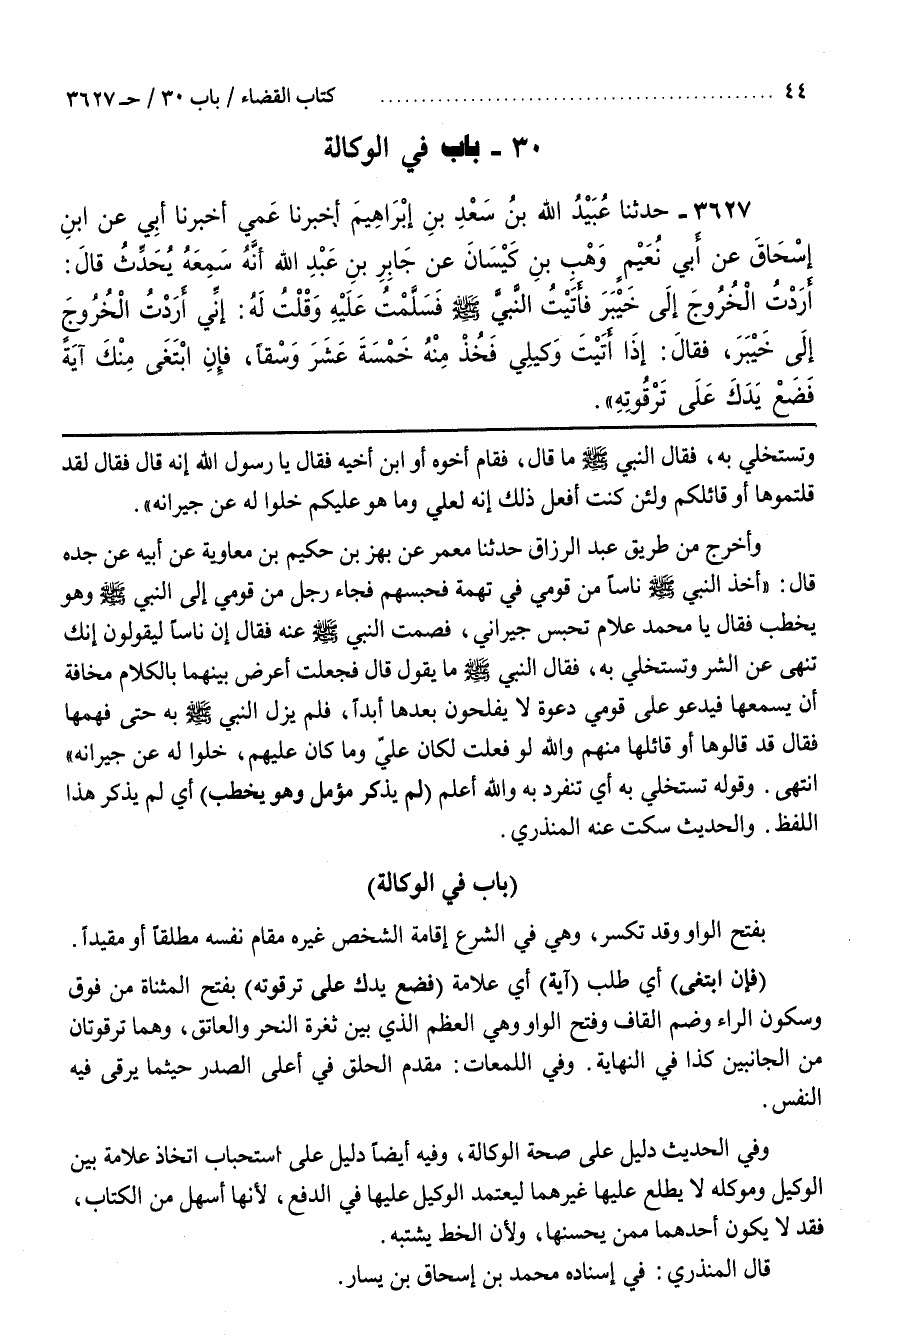 ٤٤ ................................................ كتاب القضاء / باب ٣٠ / حـ ٣٦٢٧
٣٠ ـ باب في الوكالة
٣٦٢٧ ـ حدثنا عُبَيْدُ الله بنُ سَعْدِ بنِ إبْرَاهِيمَ أخبرنا عَمي أخبرنا أبِي عن ابنِ
إسْحَاقَ عن أبي نُعَيْمٍ وَهْبِ بنِ كَيْسَانَ عن جَابِرِ بنِ عَبْدِ الله أنَّهُ سَمِعَهُ يُحَدِّثُ قالَ:
أَرَدْتُ الْخُرُوجَ إلَى خَيْبَرَ فأَتَيْتُ النَّبيَّ ﷺ فَسَلَّمْتُ عَلَيْهِ وَقُلْتُ لَهُ: إنِّي أَرَدْتُ الْخُرُوجَ
إلَى خَيْبَرَ، فقالَ: إذَا أَتَيْتَ وَكِيلِي فَخُذْ مِنْهُ خَمْسَةَ عَشَرَ وَسْقاً، فإنِ ابْتَغَى مِنْكَ آيَةً
فَضَعْ يَدَكَ عَلَى تَرْقُوتِهِ».
وتستخلي به، فقال النبي ﷺ ما قال، فقام أخوه أو ابن أخيه فقال يا رسول الله إنه قال فقال لقد
قلتموها أو قائلكم ولئن كنت أفعل ذلك إنه لعلي وما هو عليكم خلوا له عن جيرانه».
وأخرج من طريق عبد الرزاق حدثنا معمر عن بهز بن حكيم بن معاوية عن أبيه عن جده
قال: «أخذ النبي ﷺ ناساً من قومي في تهمة فحبسهم فجاء رجل من قومي إلى النبي ﷺ وهو
يخطب فقال يا محمد علام تحبس جيراني، فصمت النبي ﷺ عنه فقال إن ناساً ليقولون إنك
تنهى عن الشر وتستخلي به، فقال النبي ﷺ ما يقول قال فجعلت أعرض بينهما بالكلام مخافة
أن يسمعها فيدعو على قومي دعوة لا يفلحون بعدها أبداً، فلم يزل النبي ﷺ به حتى فهمها
فقال قد قالوها أو قائلها منهم والله لو فعلت لكان عليّ وما كان عليهم، خلوا له عن جيرانه»
انتهى. وقوله تستخلي به أي تنفرد به والله أعلم (لم يذكر مؤمل وهو يخطب) أي لم يذكر هذا
اللفظ. والحديث سكت عنه المنذري.
(باب في الوكالة)
بفتح الواو وقد تكسر، وهي في الشرع إقامة الشخص غيره مقام نفسه مطلقاً أو مقيداً.
(فإن ابتغى) أي طلب (آية) أي علامة (فضع يدك على ترقوته) بفتح المثناة من فوق
وسكون الراء وضم القاف وفتح الواو وهي العظم الذي بين ثغرة النحر والعاتق، وهما ترقوتان
من الجانبين كذا في النهاية. وفي اللمعات: مقدم الحلق في أعلى الصدر حيثما يرقى فيه
النفس.
وفي الحديث دليل على صحة الوكالة، وفيه أيضاً دليل على استحباب اتخاذ علامة بين
الوكيل وموكله لا يطلع عليها غيرهما ليعتمد الوكيل عليها في الدفع، لأنها أسهل من الكتاب،
فقد لا يكون أحدهما ممن يحسنها، ولأن الخط يشتبه.
قال المنذري: في إسناده محمد بن إسحاق بن يسار.